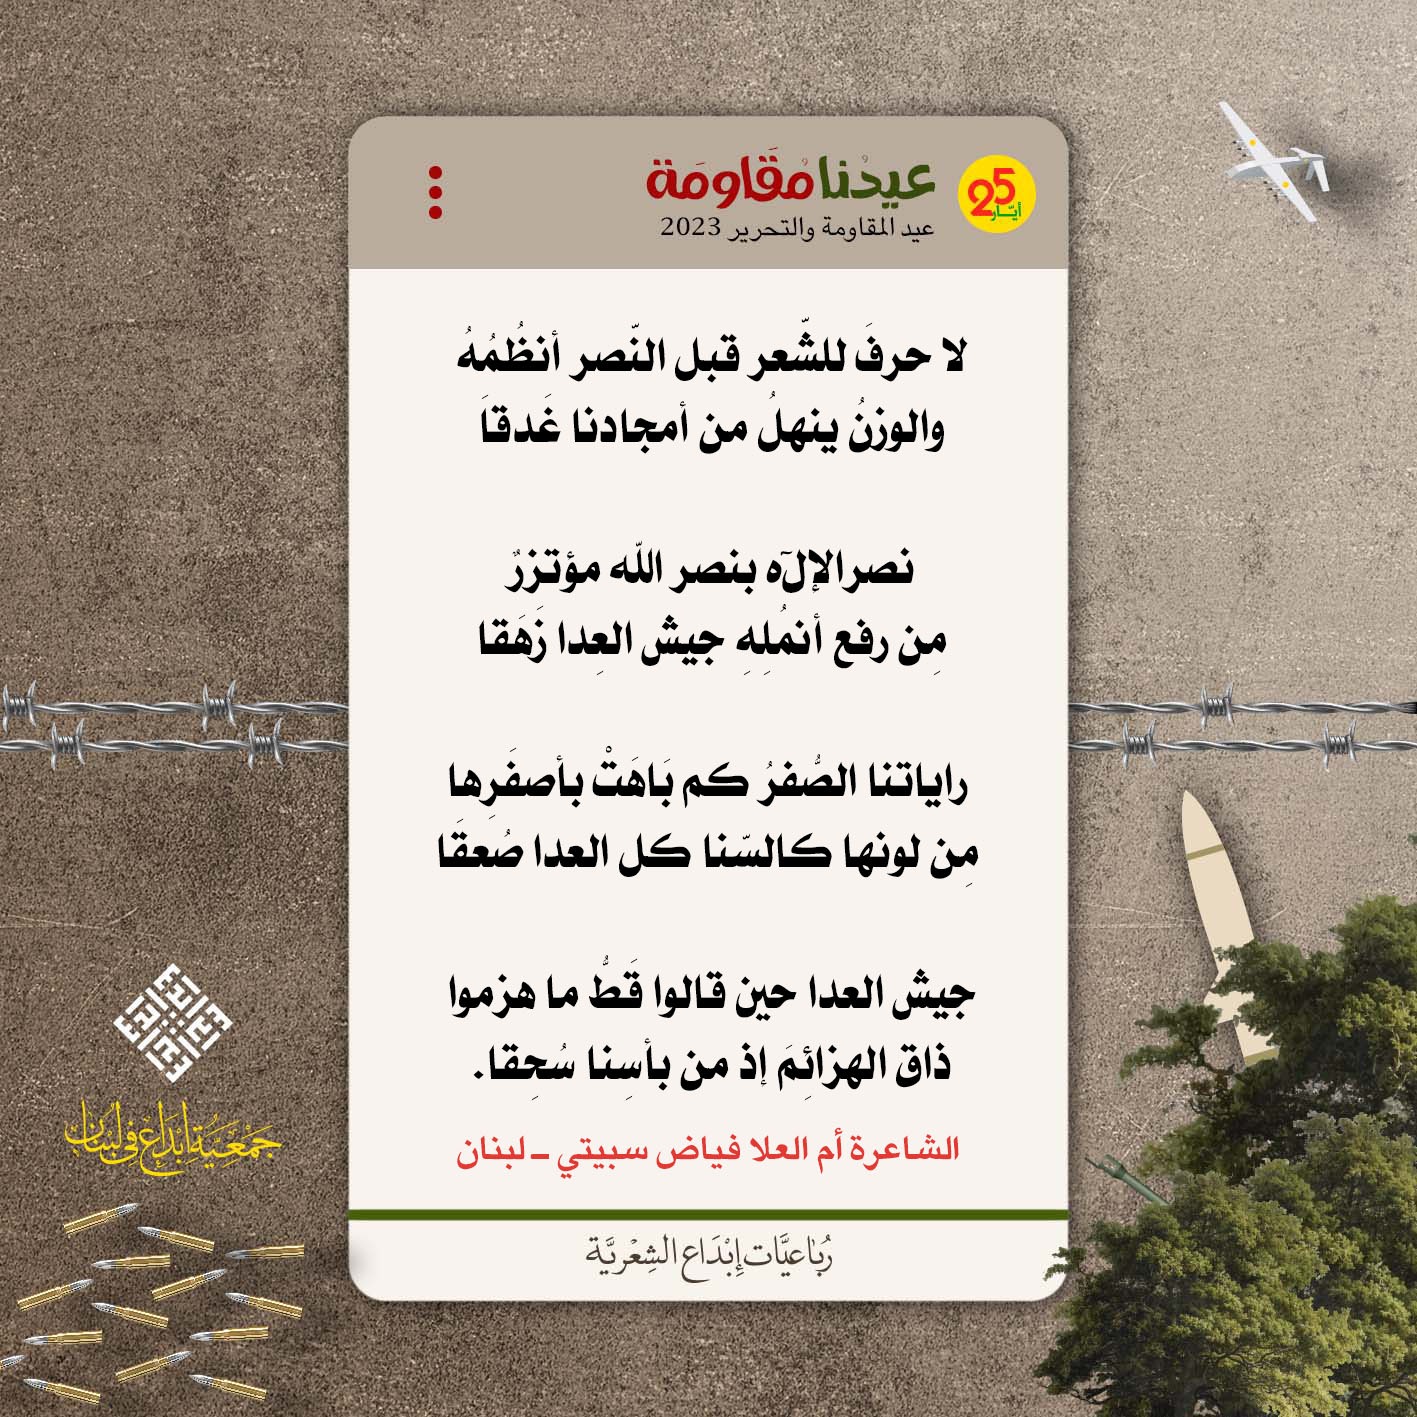 عيدُنا مُقَاوَمَة
25 أيّار
عيد المقاومة والتحرير 2023
لا حرفَ للشّعر قبل النّصر أنظُمُهُ
والوزنُ ينهلُ من أمجادنا غَدقاَ
نصرالإلٓه بنصر اللّه مؤتزرٌ
مِن رفع أنمُلِهِ جيش العِدا زَهَقا
راياتنا الصُّفرُ كم بَاهَتْ بأصفَرِها
مِن لونها كالسّنا كل العدا صُعقَا
جيش العدا حين قالوا قَطُّ ما هزموا
ذاق الهزائِمَ إذ من بأسِنا سُحِقا.
الشاعرة أم العلا فياض سبيتي ـ لبنان
رُبَاعيَّات إِبْدَاع الشِعْريَّة
جَمْعِيَّة إبْدَاع فِي لبْنَان